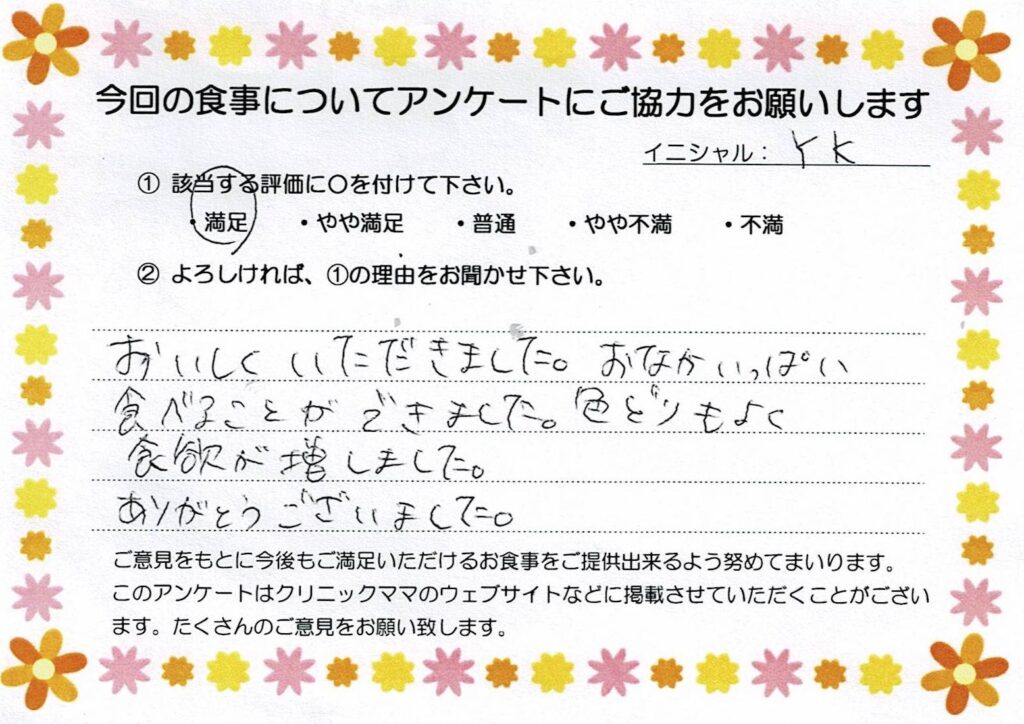 今回の食事についてアンケートにご協力をお願いします
イニシャル： YK
① 該当する評価に〇を付けて下さい。
・満足 ・やや満足 ・普通 ・やや不満 ・不満
② よろしければ、①の理由をお聞かせ下さい。
おいしくいただきました。おなかいっぱい
食べることができました。色どりもよく
食欲が増しました。
ありがとうございました。
ご意見をもとに今後もご満足いただけるお食事をご提供出来るよう努めてまいります。
このアンケートはクリニックママのウェブサイトなどに掲載させていただくことがござい
ます。たくさんのご意見をお願い致します。